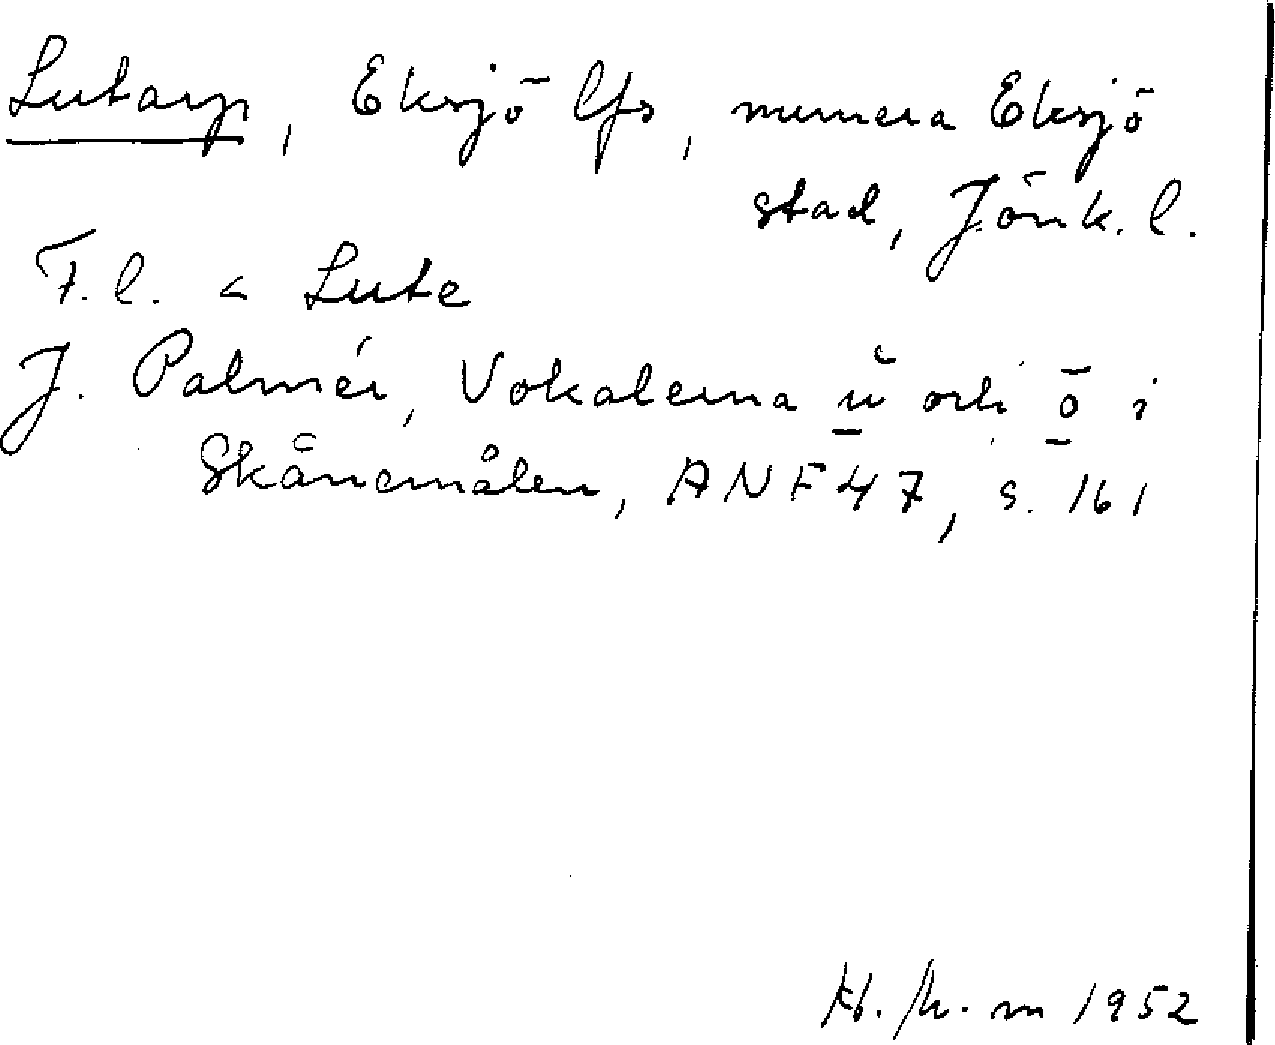 Lutarp, Eksjö lfs, numera Eksjö
stad, Jönk. l.
F.l. < Lute
J. Palmér, Vokalerna ŭ och ō i
Skånemålen, ANF 47, s. 161
1952